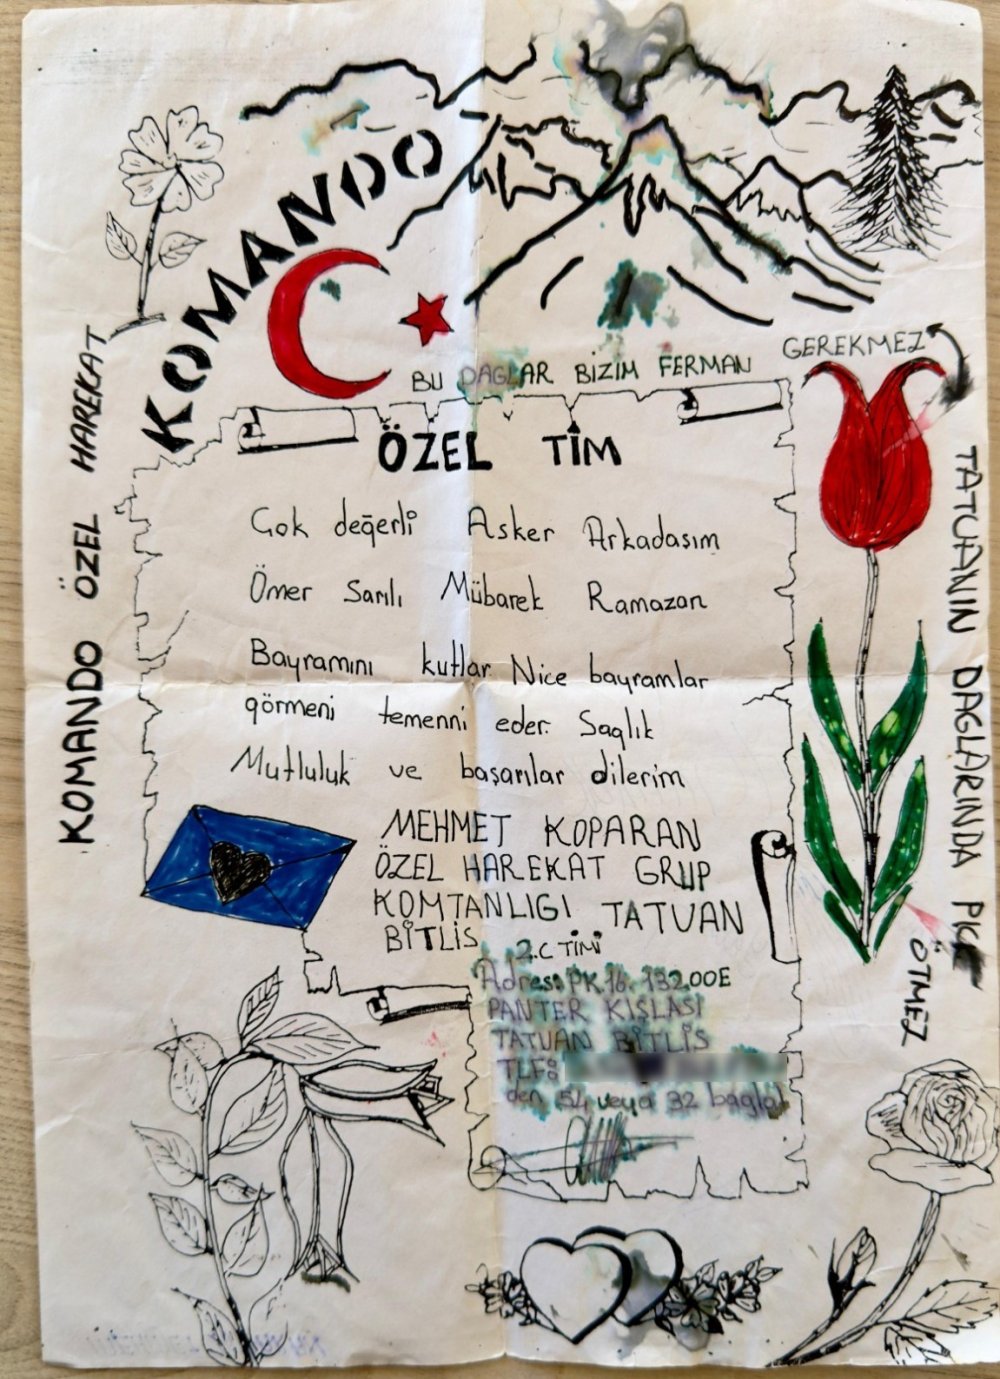 KOMANDO
BU DAGLAR BIZIM FERMAN
GEREKMEZ
KOMANDO ÖZEL HAREKAT
ÖZEL TİM
Cok değerli Asker Arkadaşım
Ömer Sarılı Mübarek Ramazan
Bayramını kutlar Nice bayramlar
görmeni temenni eder. Saglık
Mutluluk ve başarılar dilerim
MEHMET KOPARAN
ÖZEL HAREKAT GRUP
KOMTANLIGI TATUAN
BİTLİS
2.C TİMİ
Adres: PK.16. 132.00E
PANTER KIŞLASI
TATUAN BİTLİS
TLF:
den 54 veya 32 bagla
TATUANIN DAGLARINDA
ÖTMEZ